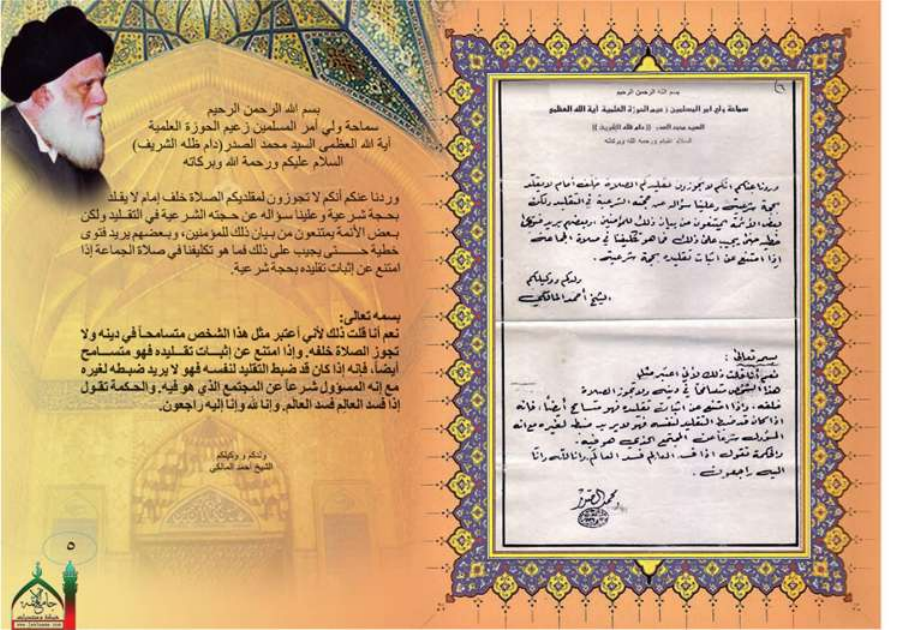 بسم الله الرحمن الرحيم
سماحة ولي أمر المسلمين زعيم الحوزة العلمية
آية الله العظمى السيد محمد الصدر(دام ظله الشريف)
السلام عليكم ورحمة الله وبركاته
وردنا عنكم أنكم لا تجوزون لمقلديكم الصلاة خلف إمام لا يقلد
بحجة شرعية وعلينا سؤاله عن حجته الشرعية في التقليد ولكن
بعض الأئمة يمتنعون من بيان ذلك للمؤمنين، وبعضهم يريد فتوى
خطية حتى يجيب على ذلك فما هو تكليفنا في صلاة الجماعة إذا
امتنع عن إثبات تقليده بحجة شرعية.
بسمه تعالى:
نعم أنا قلت ذلك لأني أعتبر مثل هذا الشخص متسامحاً في دينه ولا
تجوز الصلاة خلفه. وإذا امتنع عن إثبات تقليده فهو متسامح
أيضاً، فإنه إذا كان قد ضبط التقليد لنفسه فهو لا يريد ضبطه لغيره
مع إنه المسؤول شرعاً عن المجتمع الذي هو فيه. والحكمة تقول
إذا فسد العالِم فسد العالَم. وإنا لله وإنا إليه راجعون.
ولدكم و وكيلكم
الشيخ أحمد المالكي
٥
بسم الله الرحمن الرحيم
سماحة ولي امر المسلمين زعيم الحوزة العلمية آية الله العظمى
السيد محمد الصدر (( دام ظله الشريف ))
السلام عليكم ورحمة الله وبركاته
وردنا عنكم انكم لا تجوزون لمقلديكم الصلاة خلف أمام لا يقلد
بحجة شرعية وعلينا سؤاله عن حجته الشرعية في التقليد ولكن
بعض الأئمة يمتنعون من بيان ذلك للمؤمنين، وبعضهم يريد فتوى
خطية حتى يجيب على ذلك فما هو تكليفنا في صلاة الجماعة
إذا امتنع عن اثبات تقليده بحجة شرعية.
ولدكم ووكيلكم
الشيخ أحمد المالكي
بسمه تعالى :
نعم أنا قلت ذلك لأني اعتبر مثل
هذا الشخص متسامحاً في دينه ولا تجوز الصلاة
خلفه. وإذا امتنع عن اثبات تقليده فهو متسامح أيضاً، فانه
اذا كان قد ضبط التقليد لنفسه فهو لا يريد ضبطه لغيره مع انه
المسؤول شرعاً عن المجتمع الذي هو فيه.
والحكمة تقول اذا فسد العالم فسد العالم وانا لله وانا
اليه راجعون.
محمد الصدر